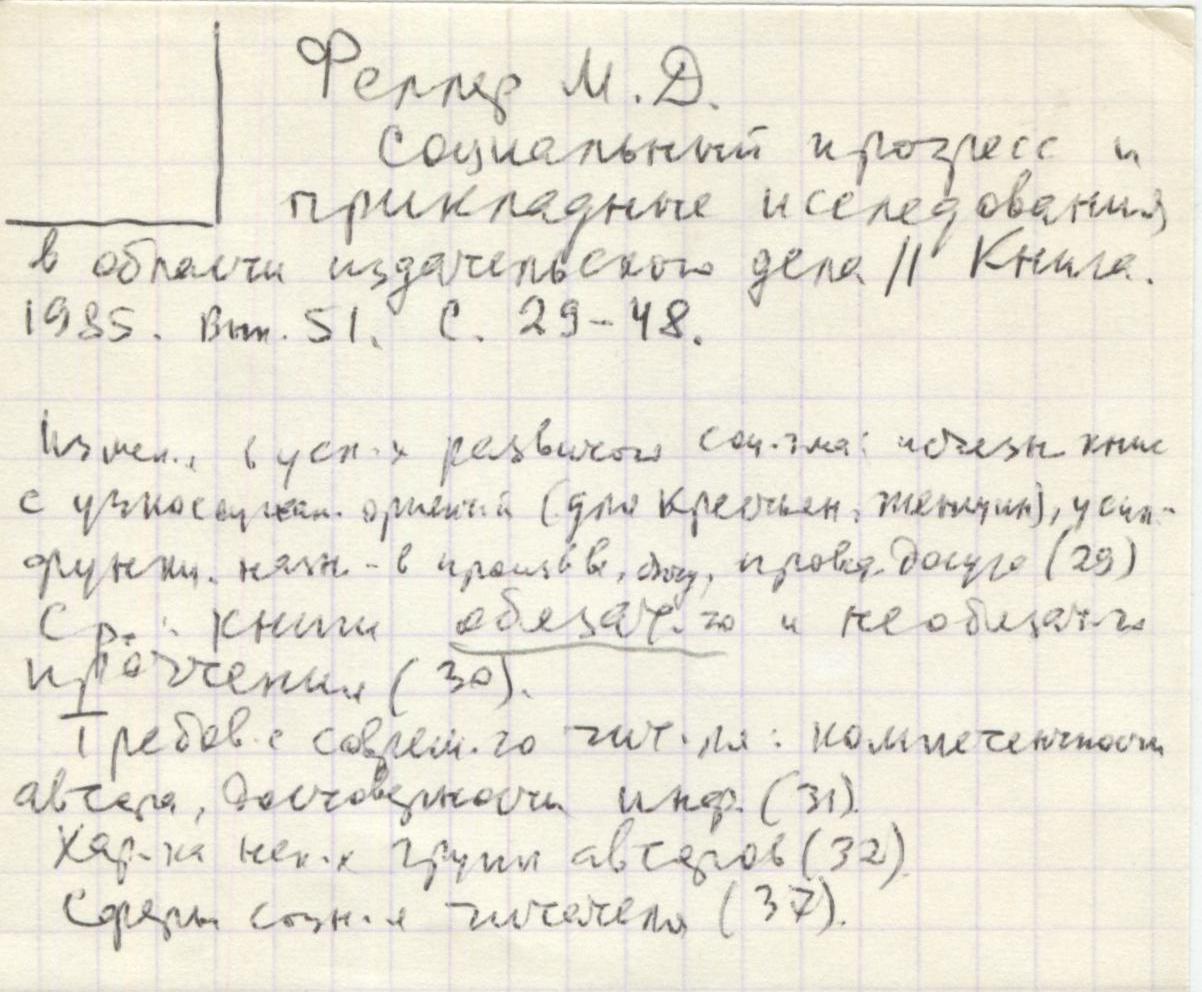 Феллер М. Д.
Социальный прогресс и
прикладные иследования
в области издательского дела // Книга.
1985. Вып. 51. С. 29-48.
Измен.. в усл-х развитого соц-зма: исчезн. книг
с узкосоциал. ориент-й (для крестьян, женщин), усил-
функц. назн-в произв-ве, , провед. досуга (29)
Ср.: книги обязат.го и необязат-го
прочтения (30).
Требов-е соврем-го чит-ля: компетентности
автора, достоверности инф. (31).
Хар-ка нек-х групп авторов (32).
Сферы созн-я читателя (37).